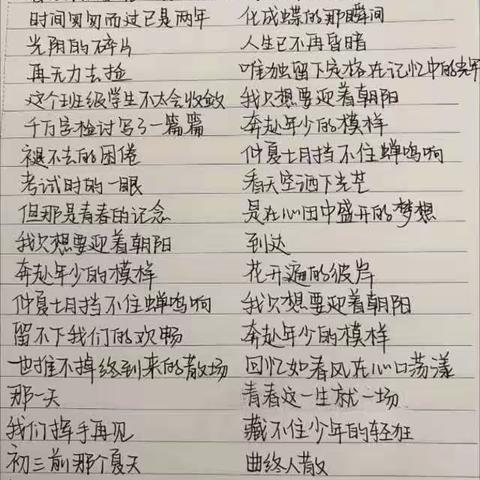 时间匆匆而过已是两年
光阴的碎片
再无力去捡
这个班级学生不太会收敛
千万字检讨写了一篇篇
褪不去的困倦
考试时的一眼
但那是青春的记念
我只想要迎着朝阳
奔赴年少的模样
仲夏七月挡不住蝉鸣响
留不下我们的欢畅
也推不掉终到来的散场
那一天
我们挥手再见
初三前那个夏天
化成蝶的那瞬间
人生已不再昏暗
唯独留下定格在记忆中的
我只想要迎着朝阳
奔赴年少的模样
仲夏七月挡不住蝉鸣响
看天空洒下光芒
是在心田中盛开的梦想
到达
花开遍的彼岸
我只想要迎着朝阳
奔赴年少的模样
回忆如春风在心口荡漾
青春这一生就一场
藏不住少年的轻狂
曲终人散